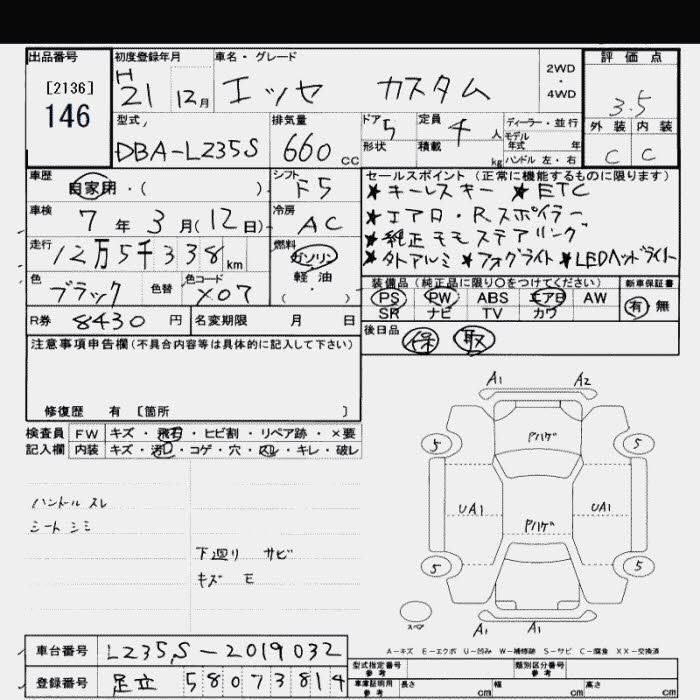 出品番号 初度登録年月 車名・グレード 評価点
[2136] 146
H 21 12月 エッセ カスタム 2WD・4WD 3.5
型式 排気量 ドア 5 定員 4 人 ディーラー・並行 外装 内装
DBA-L235S 660 CC 形状 積載 kg モデル年式 年 ハンドル 左・右 C C
車歴 自家用・( ) シフト F5 セールスポイント (正常に機能するものに限ります)
★キーレスキー ★ETC
車検 7年 3月(12日) 冷房 AC ★エアロ・Rスポイラー
★純正モモステアリング
走行 12万5千338km 燃料 ガソリン 軽・油 ( ) ★外アルミ ★フォグライト ★LEDヘッドライト
色 ブラック 色替 色コード X07 装備品 (純正品に限り○をつけてください) 新車保証書
PS PW ABS エアB AW 有 無
SR ナビ TV カワ
R券 8430 円 名変期限 月 日 後日品 保 取
注意事項申告欄(不具合内容等は具体的に記入して下さい)
修復歴 有 [箇所 ]
検査員 FW キズ・飛石・ヒビ割・リペア跡・×要
記入欄 内装 キズ・汚れ・コゲ・穴・スレ・キレ・破レ
A1 A2
Pハゲ
5 5
ハンドル スレ
シート シミ
UA1 UA1
Pハゲ
下廻り サビ
キズ E
5 5
スペア A1 A1
A-キズ E-エクボ U-凹み W-補修跡 S-サビ C-腐食 XX-交換済
車台番号 L235S-2019032 型式指定番号 参考 類別区分番号 参考
登録番号 足立 580 73814 車庫証明用 参考 長さ cm 幅 cm 高さ cm